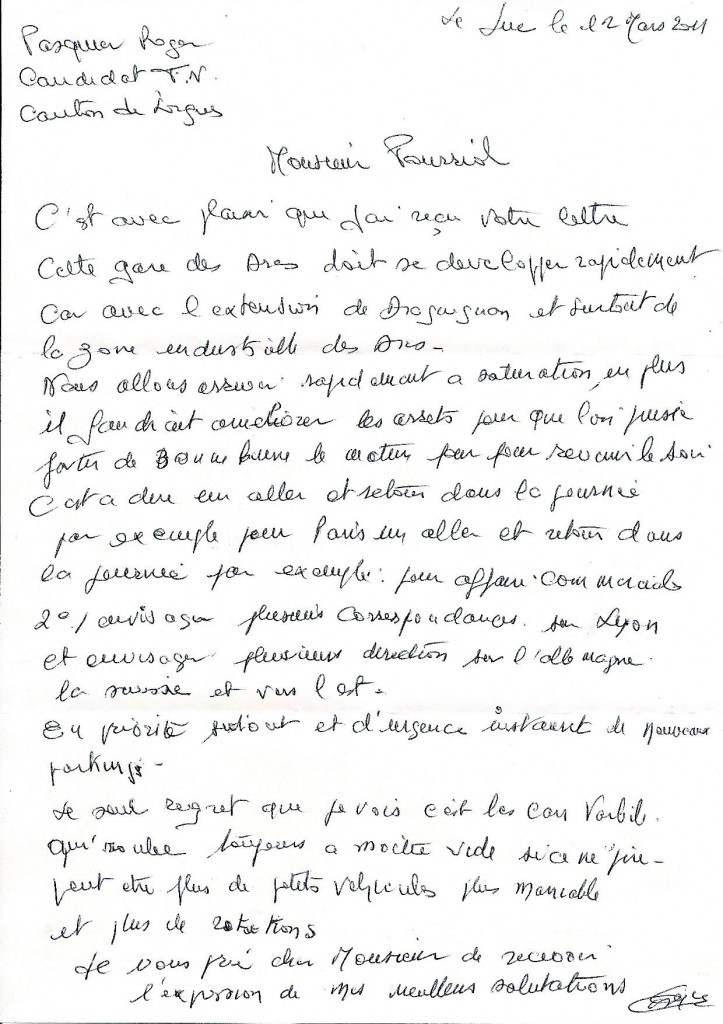 Le Luc le 12 Mars 2011
Pasquier Roger
Candidat F.N.
Canton de Lorgues
Monsieur Poussiol
C'est avec plaisir que j'ai reçu votre lettre
Cette gare des Arcs doit se developper rapidement
Car avec l'extension de Draguignan et surtout de
la zone industrielle des Arcs -
Nous allons arriver rapidement a saturation, en plus
il faudrait ameliorer les assets pour que l'on puisse
partir de Bonne heure le matin pour pour revenir le soir
C'est a dire un aller et retour dans la journée
par exemple pour Paris un aller et retour dans
la journée par exemple : pour affaire commerciale
2°/ envisager plusieurs correspondances sur Lyon
et envisager plusieurs direction sur l'allemagne
la suisse et vers l'est -
En priorité surtout et d'urgence instaurent de nouveaux
parkings -
Le seul regret que je vois c'est les cars Varlib
qui roulee toujours a moitié vide si ce ne pire -
peut etre plus de petits vehicules plus maniable
et plus de rotations
Je vous prié cher Monsieur de recevoir
l'expression de mes meilleurs salutations